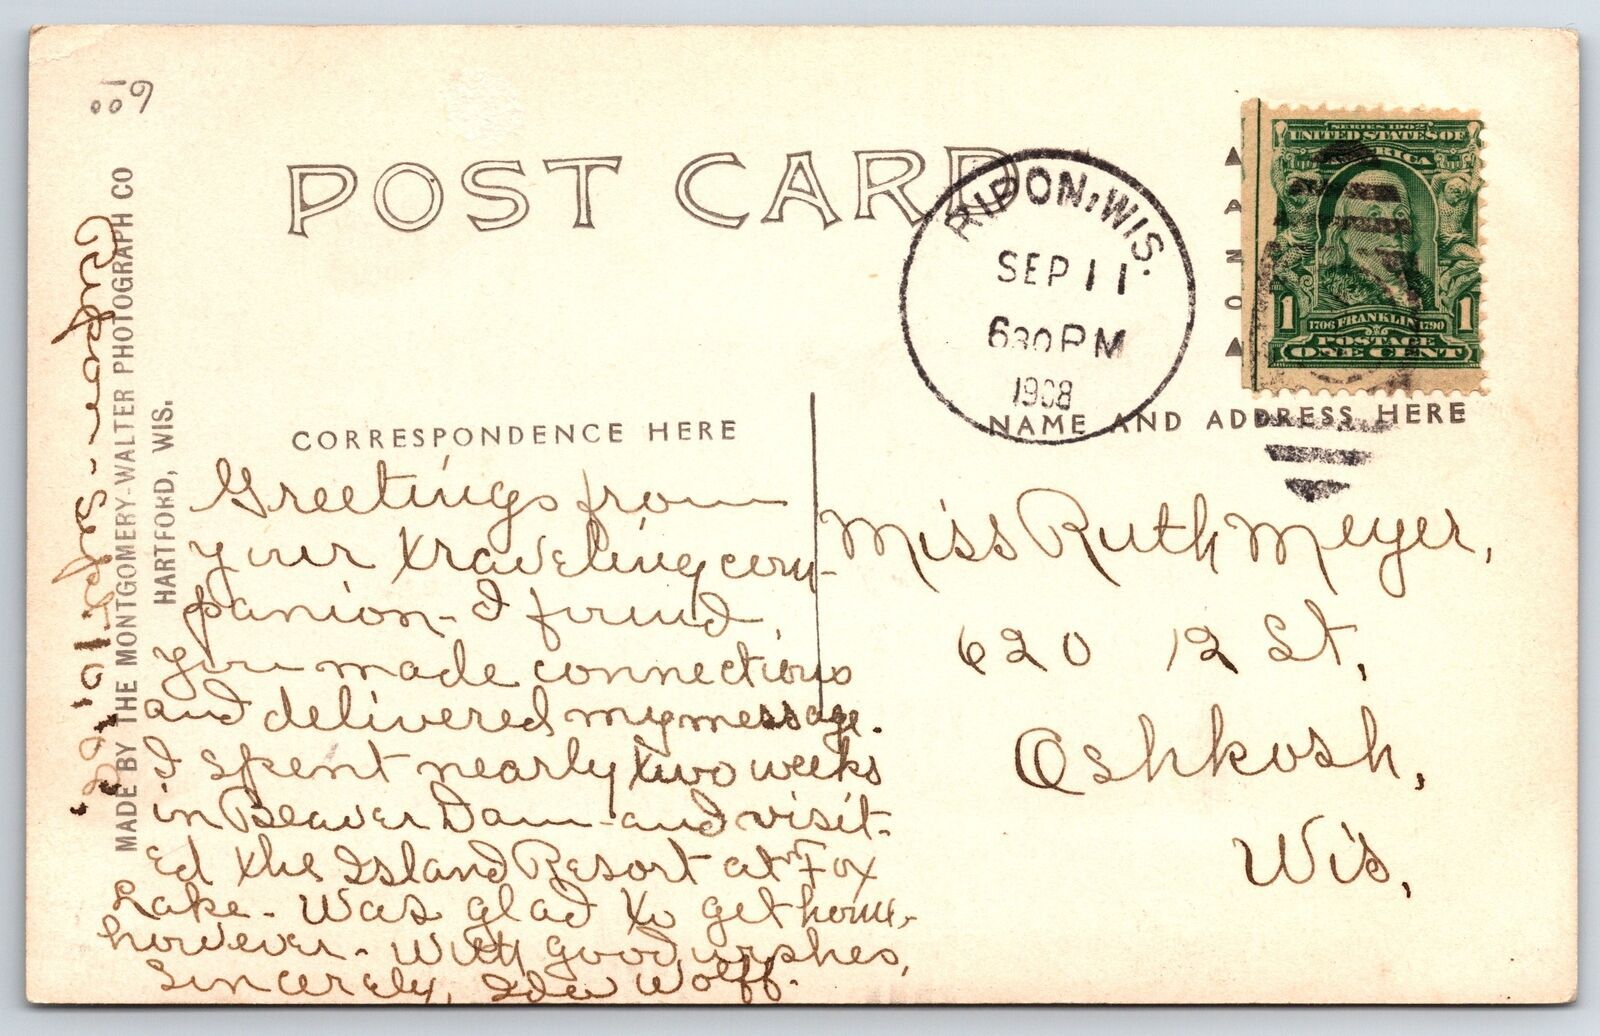 POST CARD
RIPON, WIS.
SEP 11
630 PM
1908
SERIES 1902
UNITED STATES OF
AMERICA
1 1
1706 FRANKLIN 1790
POSTAGE
ONE CENT
CORRESPONDENCE HERE
NAME AND ADDRESS HERE
MADE BY THE MONTGOMERY-WALTER PHOTOGRAPH CO
HARTFORD, WIS.
Greetings from
your traveling com-
panion - I found
you made connections
and delivered my message.
I spent nearly two weeks
in Beaver Dam - and visit-
ed the Island Resort at Fox
Lake - Was glad to get home,
however - With good wishes,
Sincerely, Ida Wolff.
Miss Ruth Meyer,
620 12 St,
Oshkosh,
Wis,